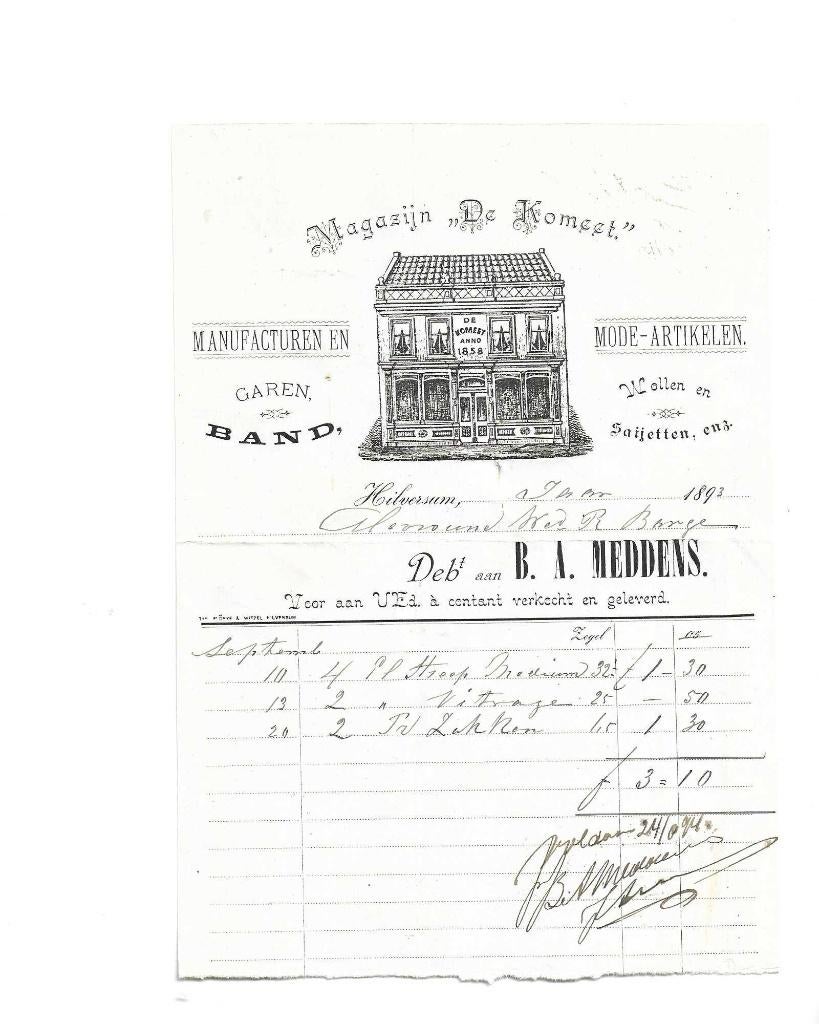 Magazijn „De Komeet.”
DE
KOMEET
ANNO
1858
MANUFACTUREN EN
MODE-ARTIKELEN.
GAREN,
BAND,
Wollen en
Saijetten, enz.
Hilversum, 1893
Wed R Barge
Debt aan B. A. MEDDENS.
Voor aan UEd. à contant verkocht en geleverd.
Zegel 05
Septemb
10 4 El Streep 32 f 1 - 30
13 2 " Vitrage 25 - 50
20 2 Zakken 1 30
f 3 = 10
Voldaan 24/
B A Meddens